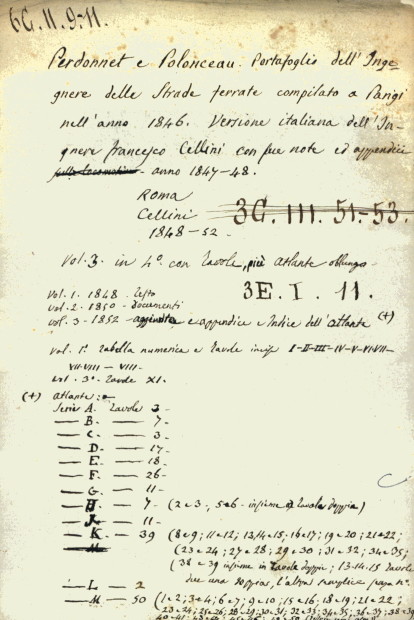 6C.II.9-11.
Perdonnet e Polonceau. Portafoglio dell'Inge-
gnere delle Strade ferrate compilato a Parigi
nell'anno 1846. Versione italiana dell'In-
gnere Francesco Cellini con sue note ed appendici
anno 1847-48.
Roma
Cellini
3C.III.51-53.
1848-52-
Vol. 3. in 4° con Tavole, più atlante oblungo
3E.I.11.
vol. 1. 1848. testo
vol. 2 - 1850 - Documenti
vol. 3 - 1852 - e appendice e Indice dell'Atlante (+)
vol. 1° tabella numerica e tavole incise I-II-III-IV-V-VI-VII-
VII-VIII - VIII-
vol. 3° tavole XI.
(+) Atlante:
Serie A. Tavole 3-
— B. — 7-
— C. — 3-
— D — 17-
— E — 18-
— F — 26-
— G — 11-
— H — 7- (2 e 3-, 5 e 6- insieme Tavola doppia)
— J — 11-
— K — 39 (8 e 9; 11 e 12; 13,14 e 15; 16 e 17; 19 e 20; 21 e 22;
(23 e 24; 27 e 28; 29 e 30; 31 e 32; 34 e 35;
(38 e 39 insieme in Tavole doppie; 13-14-15 Tavole
due una doppia, l'altra semplice
— L — 2
— M — 50 (1 e 2; 3 e 4; 6 e 7; 9 e 10; 15 e 16; 18 e 19; 21 e 22;
23 e 24; 25 e 26; 28 e 29; 30 e 31; 32 e 33; 34 e 35; 36 e 37; 38 e 39